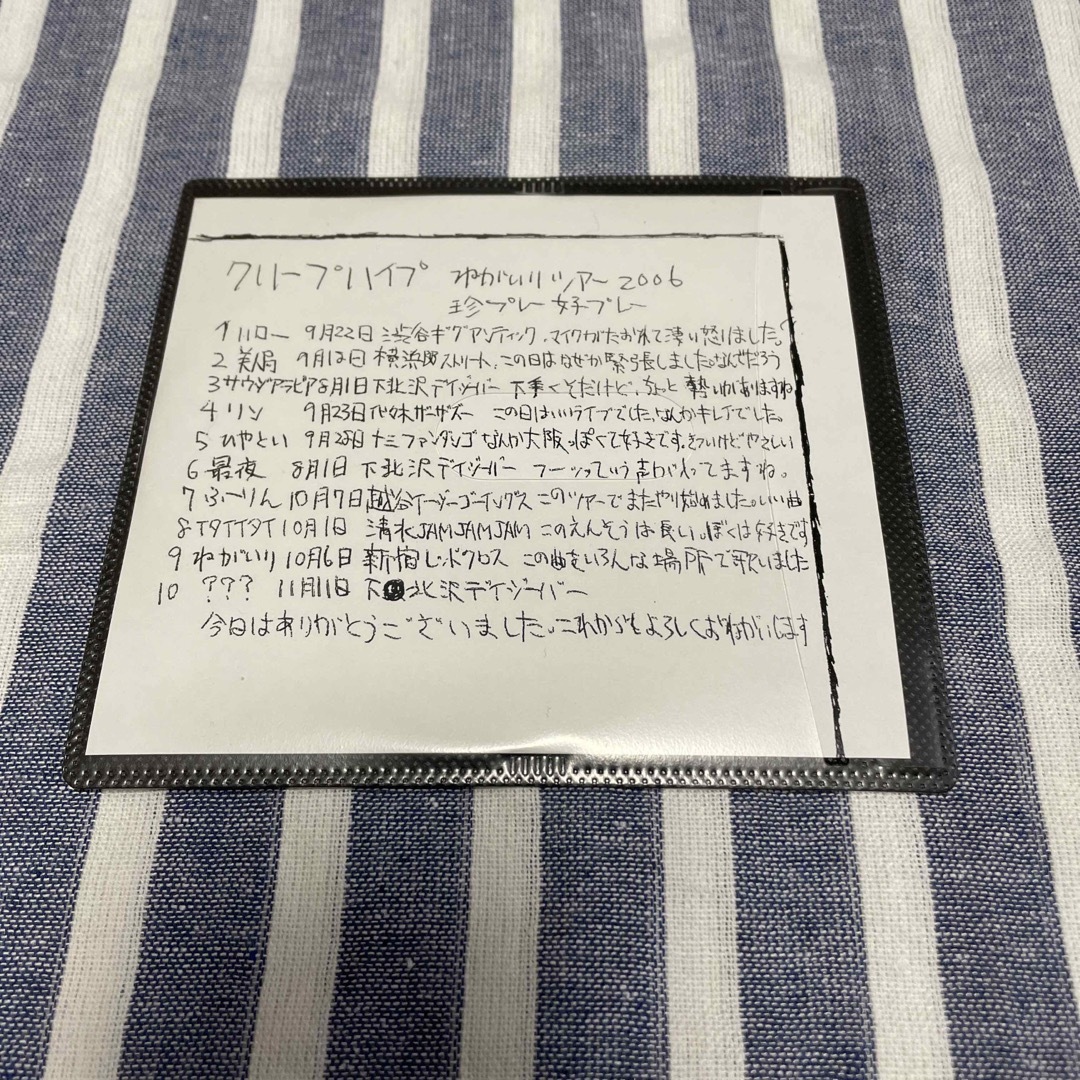 クリープハイプ ねがいりツアー2006
珍プレー好プレー
1 ハロー 9月22日 渋谷ギグアンティック、マイクがたおれて凄い怒りました。
2 美局 9月12日 横浜ストリート、この日はなぜか緊張しましたなんでだろう
3 サウジアラビア 8月1日 下北沢デイジーバー 下手くそだけど、なんと勢いがありますね
4 リン 9月23日 代々木ザーザズー この日はいいライブでした、なんかキレイでした。
5 ひやとい 9月28日 十三ファンダンゴ なんか大阪っぽくて好きです。きついけどやさしい
6 最後 8月1日 下北沢デイジーバー フーッっていう声が入ってますね。
7 ふーりん 10月7日 越谷イージーゴーイングス このツアーでまたやり始めました。いい曲
8 イタイイタイ 10月1日 清水JAMJAMJAM このえんそうは長い。ぼくは好きです
9 ねがいり 10月6日 新宿レッドクロス この曲をいろんな場所で歌いました
10 ??? 11月11日 下北沢デイジーバー
今日はありがとうございました。これからもよろしくおねがいします